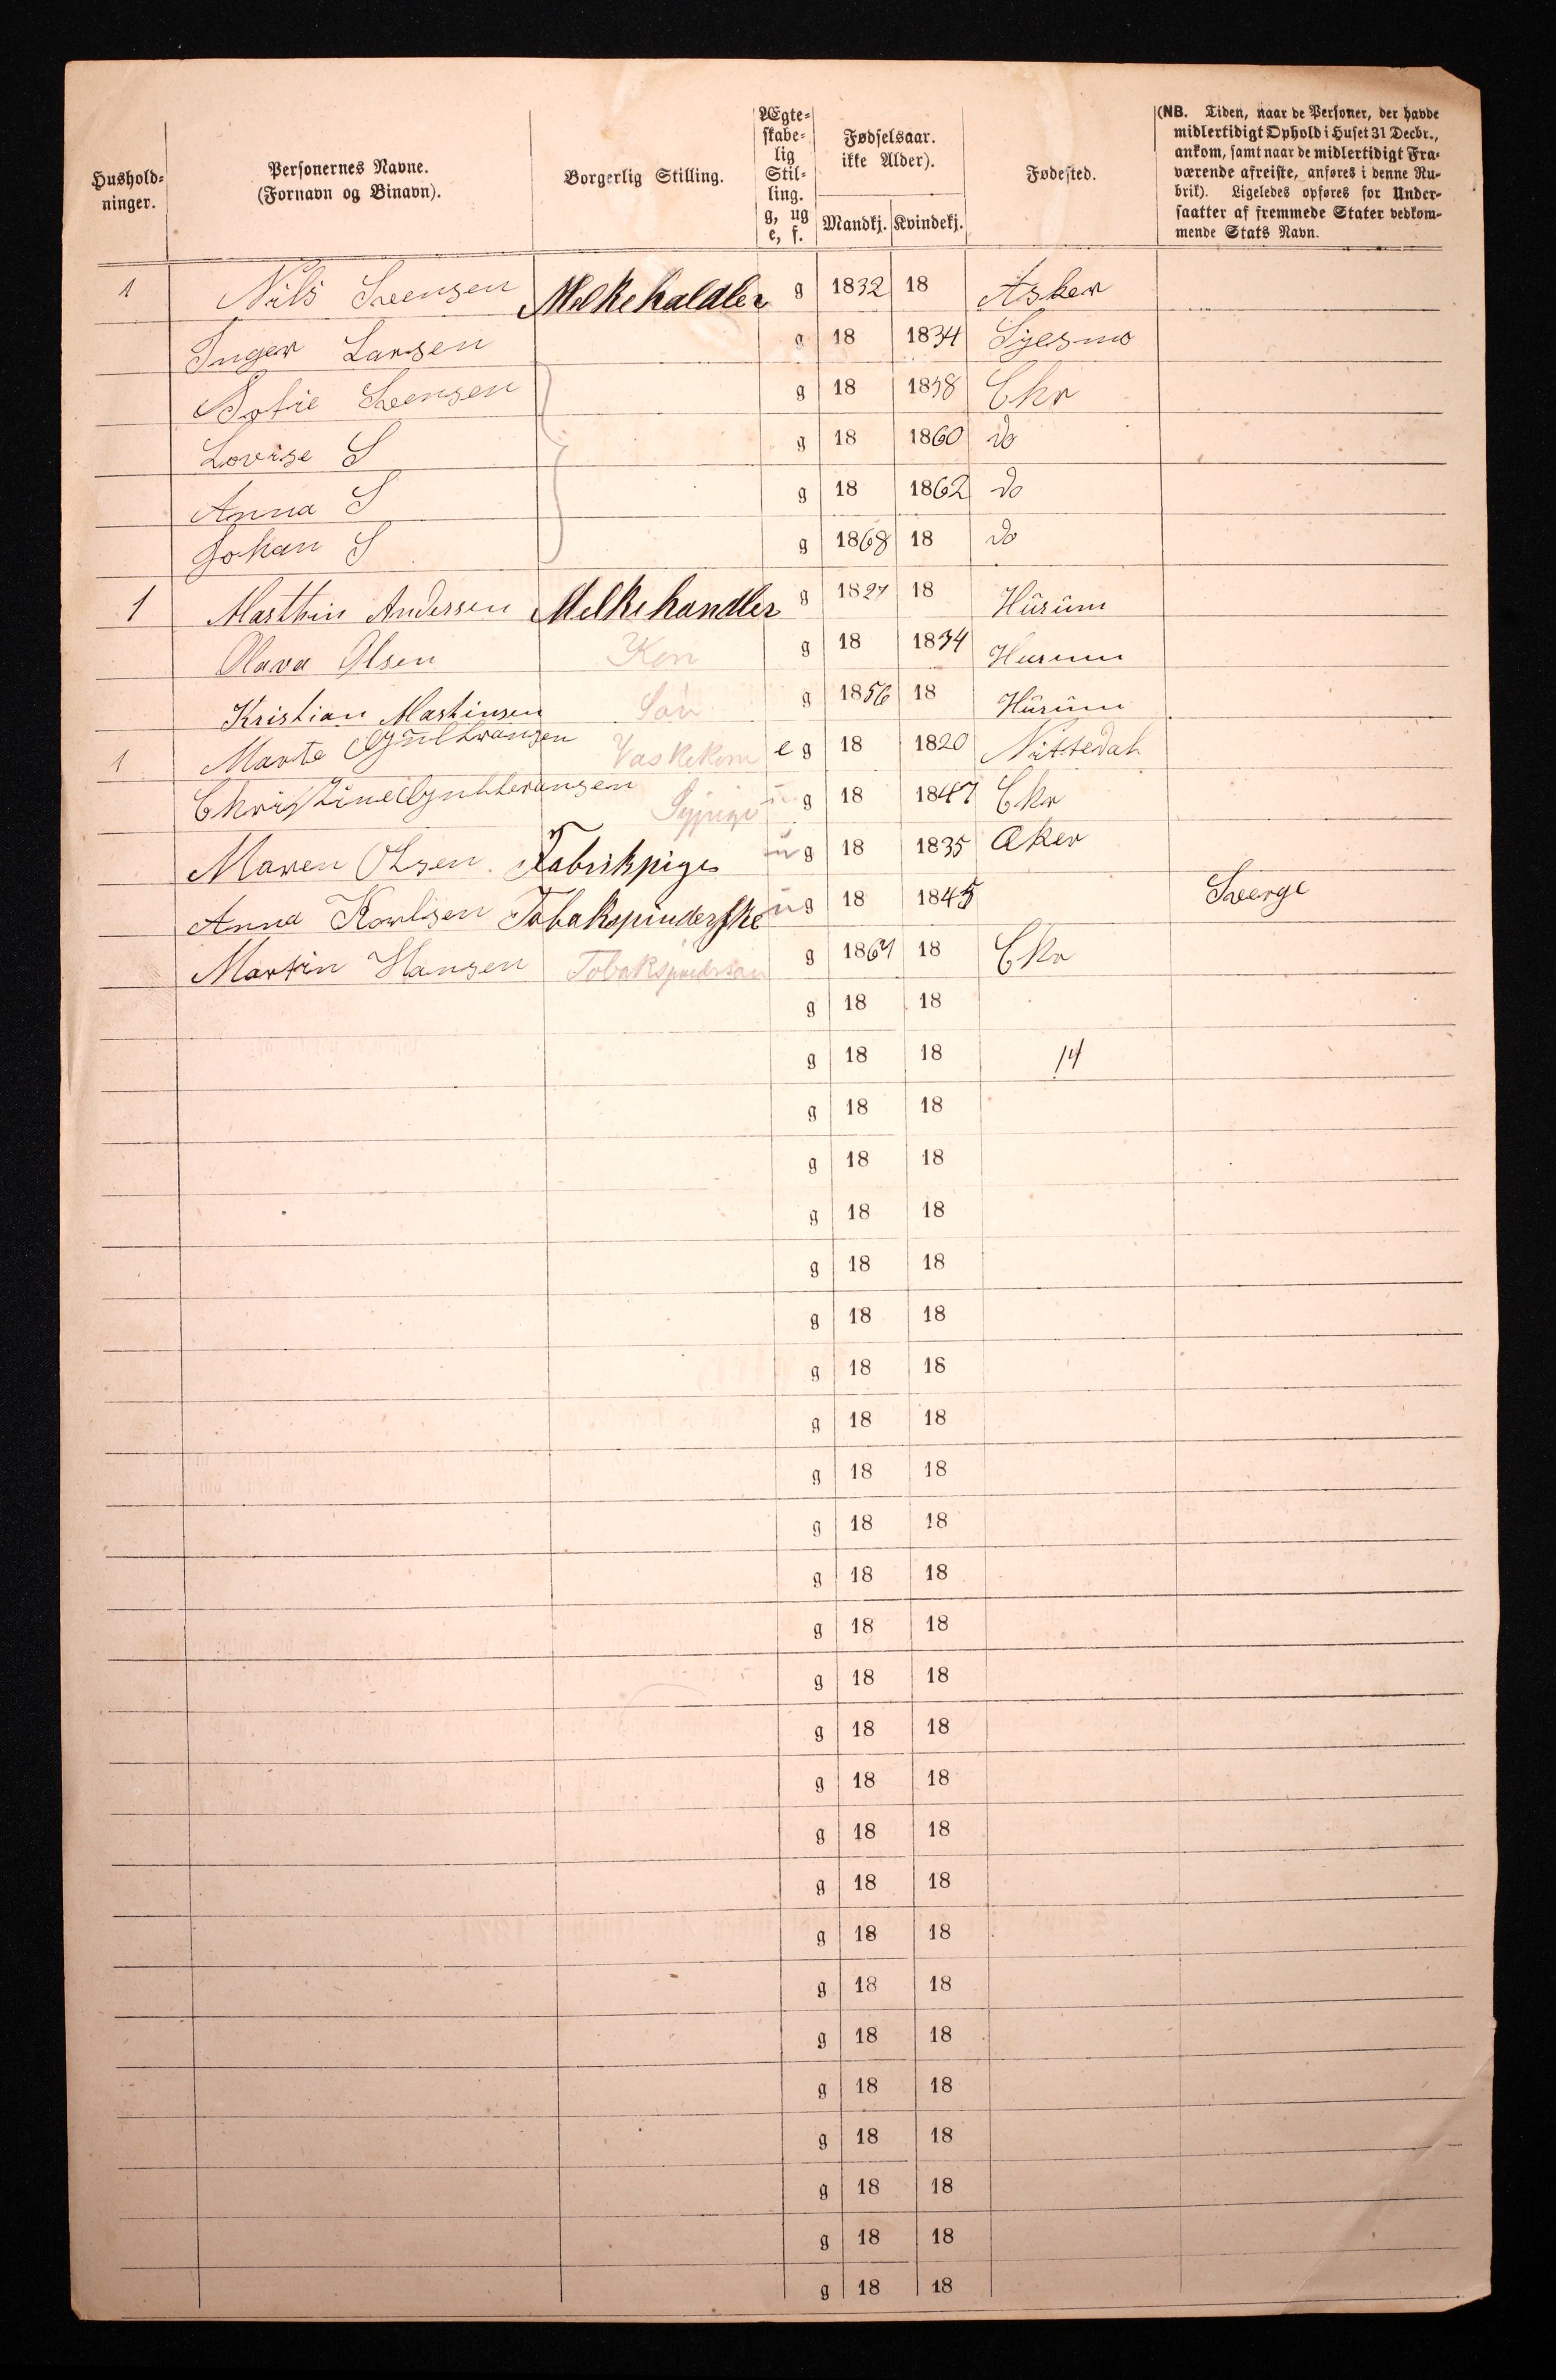 Hushold-
ninger.
Personernes Navne.
(Fornavn og Binavn).
Borgerlig Stilling.
Ægte-
skabe-
lig
Stil-
ling.
g, ug
e, f.
Fødselsaar.
ikke Alder).
Mandkj. Kvindekj.
Fødested.
(NB. Tiden, naar de Personer, der havde
midlertidigt Ophold i Huset 31 Decbr.,
ankom, samt naar de midlertidigt Fra-
værende afreiste, anføres i denne Ru-
brik). Ligeledes opføres for Under-
saatter af fremmede Stater vedkom-
mende Stats Navn.
1 Nils Svensen Melkehaldler g 1832 18 Asker
Inger Larsen g 18 1834
Sofie Svensen g 18 1858 Chr
Lovise S g 18 1860 do
Anna S g 18 1862 do
Johan S g 1868 18 do
1 Marthin Andersen Melkehandler g 1827 18 Hürüm
Olava Olsen Kon g 18 1834 Hurum
Kristian Martinsen Søn g 1856 18 Hürüm
1 Marte Gulbransen Vaskekone e g 18 1820 Nittedal
Christine Gulbransen Sypige u g 18 1847 Chr
Maren Olsen Fabrikpige u g 18 1835 Aker
Anna Karlsen Tobakspinderske u g 18 1845 Sverge
Martin Hansen g 1867 18 Chr
g 18 18
g 18 18 14
g 18 18
g 18 18
g 18 18
g 18 18
g 18 18
g 18 18
g 18 18
g 18 18
g 18 18
g 18 18
g 18 18
g 18 18
g 18 18
g 18 18
g 18 18
g 18 18
g 18 18
g 18 18
g 18 18
g 18 18
g 18 18
g 18 18
g 18 18
g 18 18